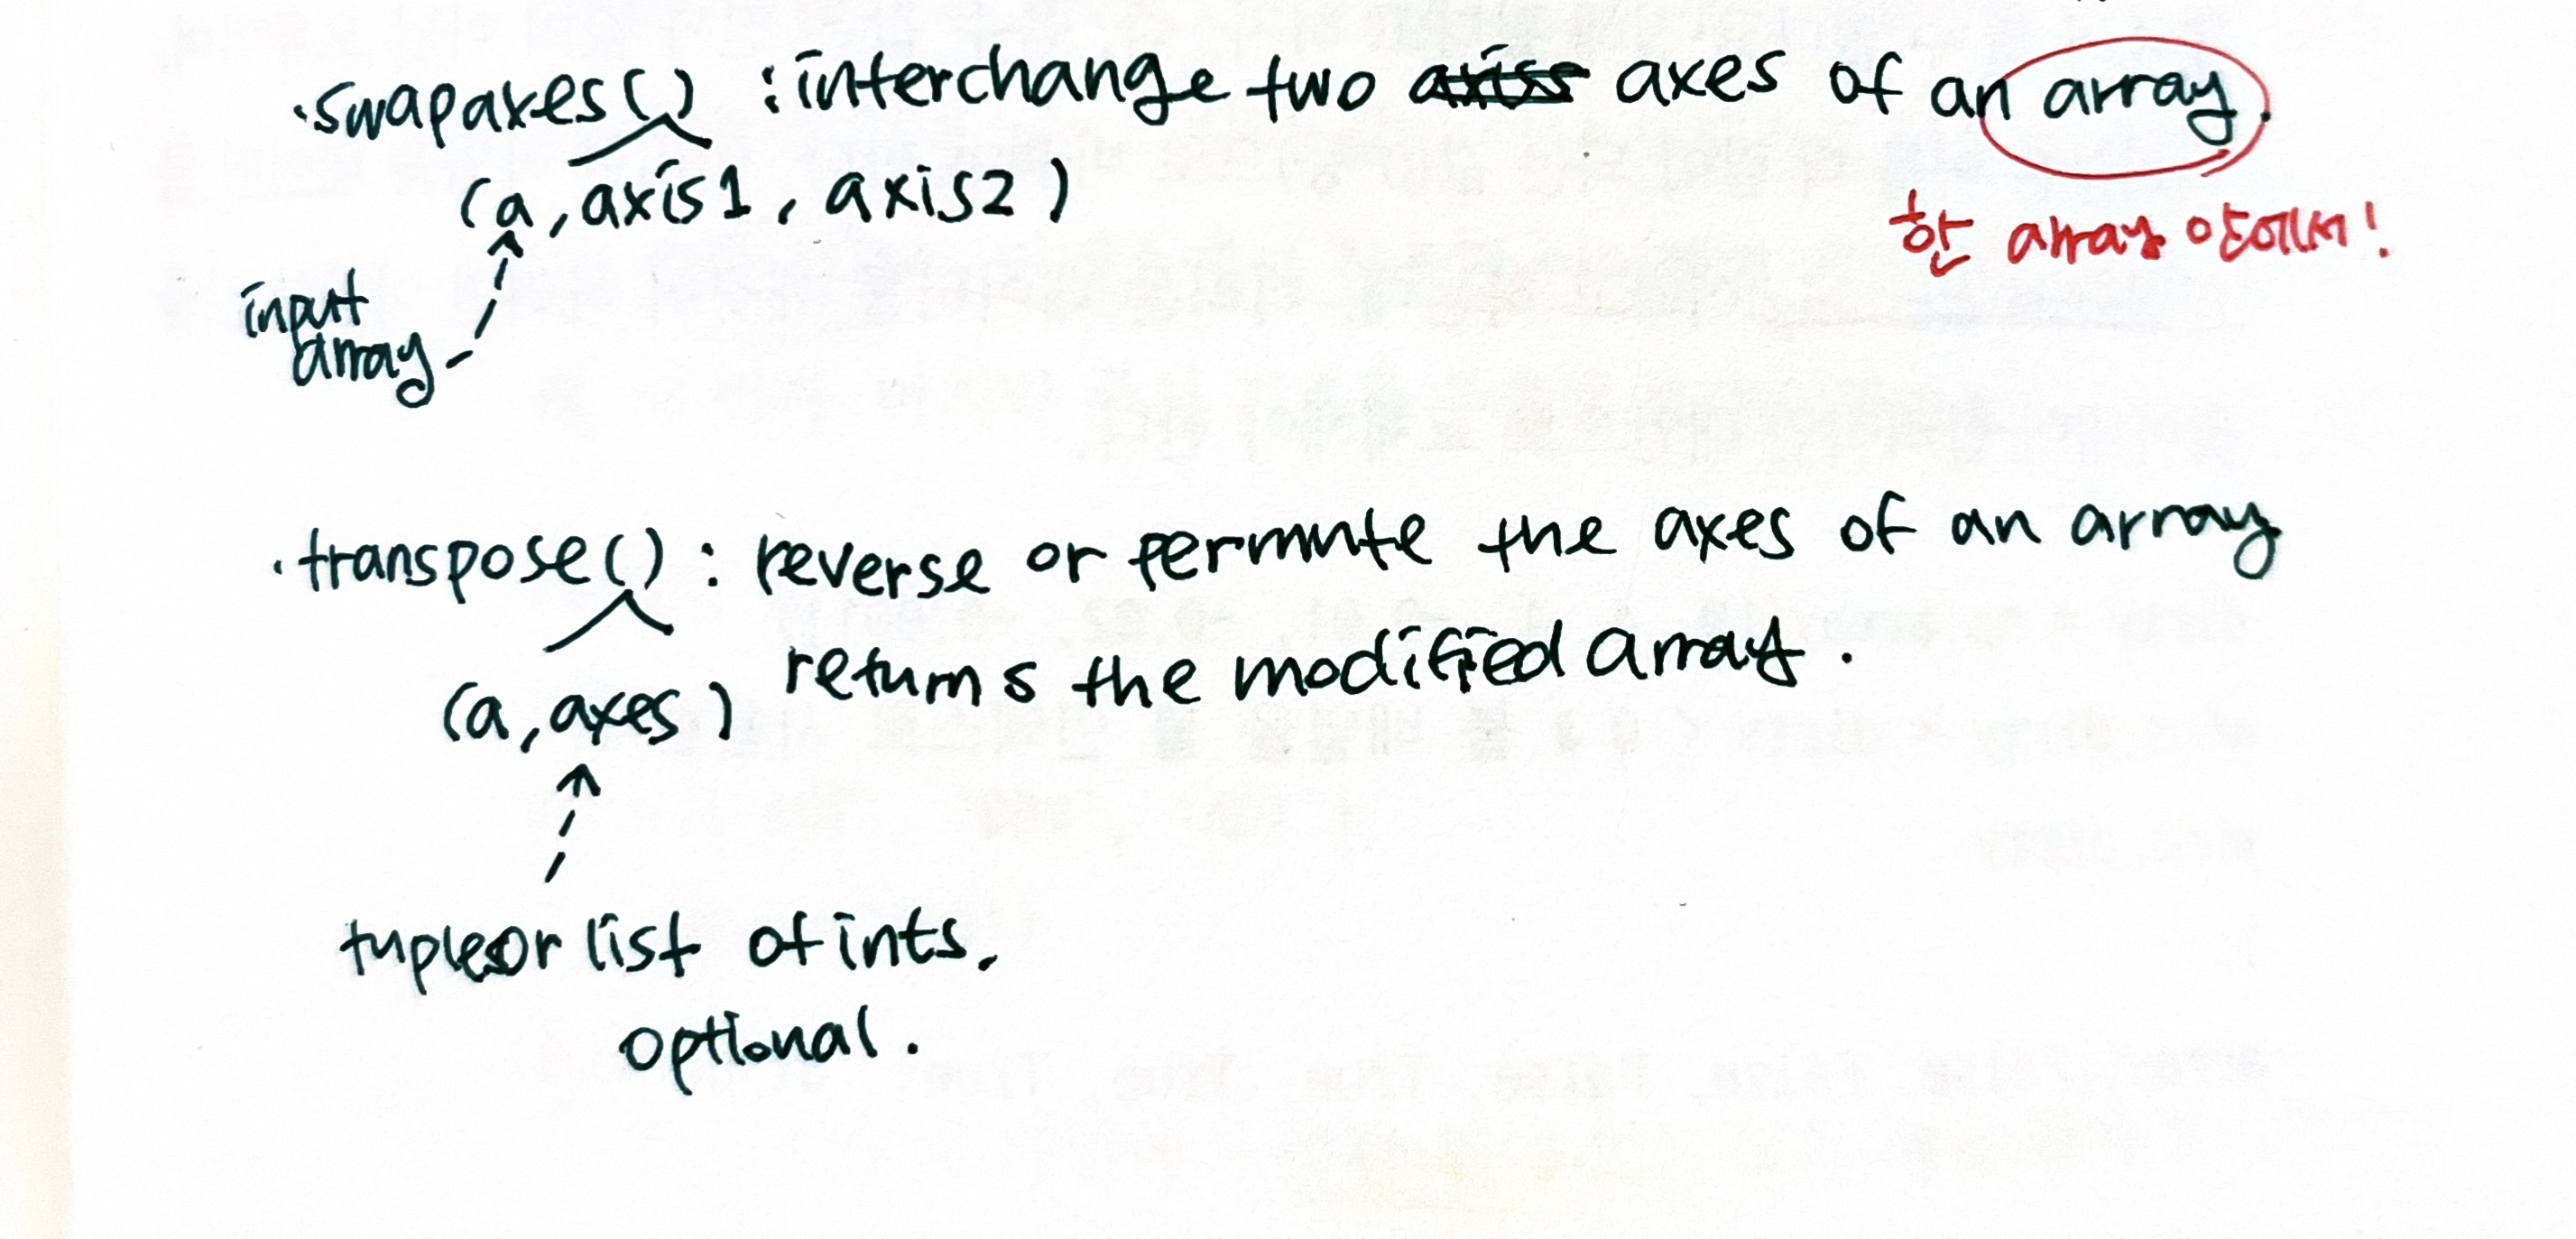 .swapaxes() : interchange two axes of an array.
(a, axis1, axis2)
한 array 안에서!
input
array
.transpose() : reverse or permute the axes of an array
returns the modified array.
(a, axes)
tuplesor list of ints,
optional.